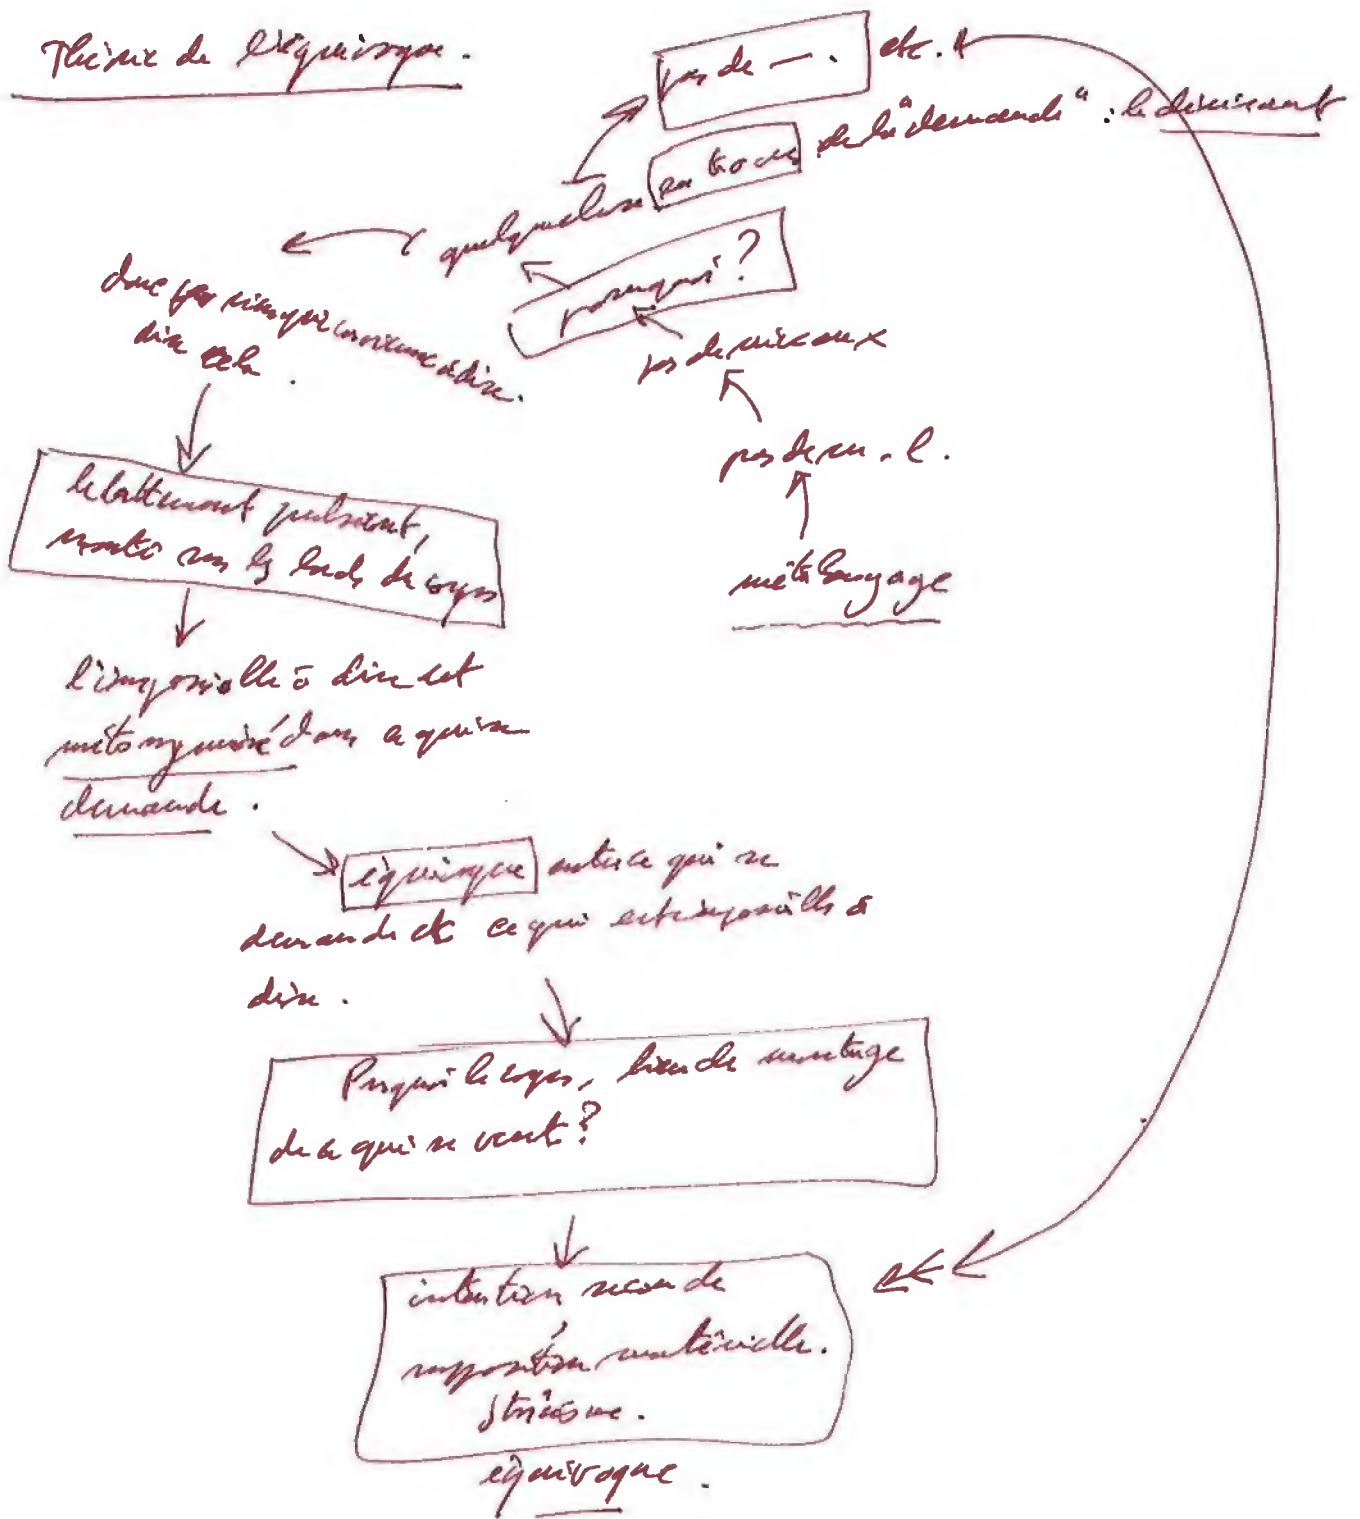 Théorie de l'équivoque.
pas de —. etc.
quelque chose en trop de la "demande" : le
pourquoi ?
donc pas rien qui à dire.
dire cela.
pas de niveaux
pas de m. l.
métalangage
le battement pulsant,
monté sur les bords du corps
l'impossible à dire est
métonymisé dans ce qui se
demande.
équivoque entre ce qui se
demande et ce qui est impossible à
dire.
Pourquoi le corps, lieu de montage
de ce qui se veut ?
intention seconde
supposition matérielle.
équivoque.